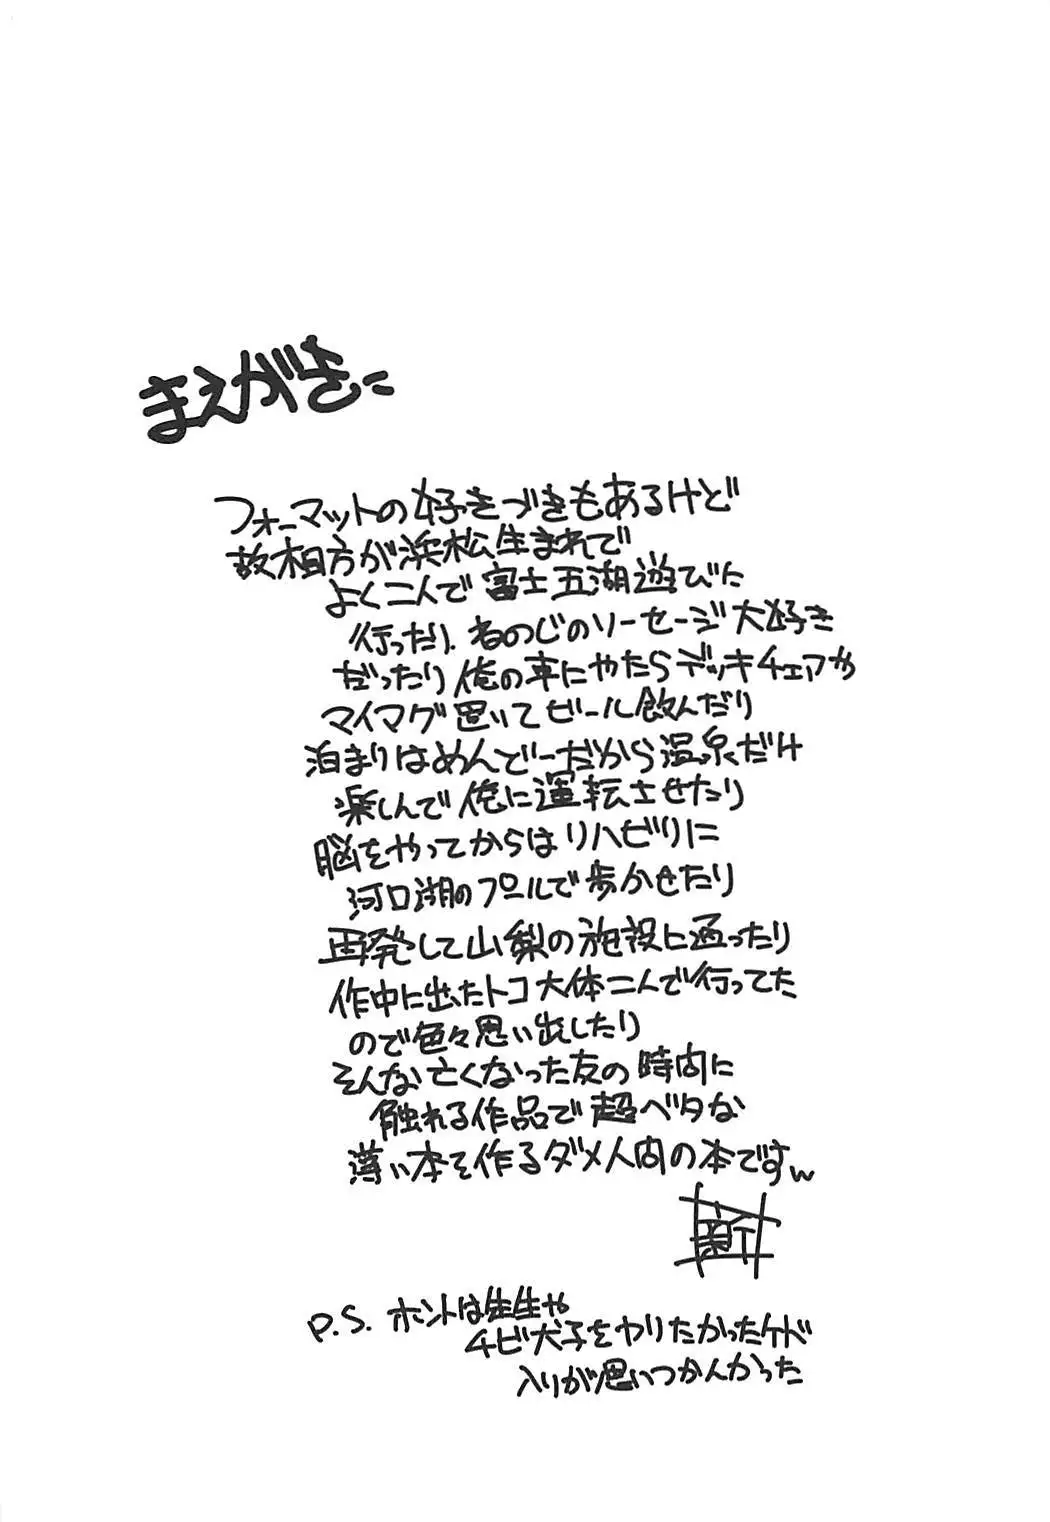 まえがきに
フォーマットの好きづきもあるけど
故相方が浜松生まれで
よく二人で富士五湖遊びに
行ったり、者のじのソーセージ大好き
だったり俺の車にやたらデッキチェアか
マイマグ置いてビール飲んだり
泊まりはめんどーだから温泉だけ
楽しんで俺に運転させたり
脳をやってからはリハビリに
河口湖のプールで歩かせたり
再発して山梨の施設に通ったり
作中に出たトコ大体二人で行ってた
ので色々思い出したり
そんな亡くなった友の時間に
触れる作品で超ベタな
薄い本を作るダメ人間の本ですw
P.S. ホントは先生や
チビ犬子をやりたかったケド
入りが思いつかんかった